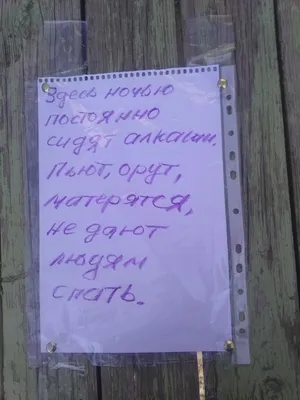 Здесь ночью
постоянно
сидят алкаши.
Пьют, орут,
матерятся,
не дают
людям
спать.